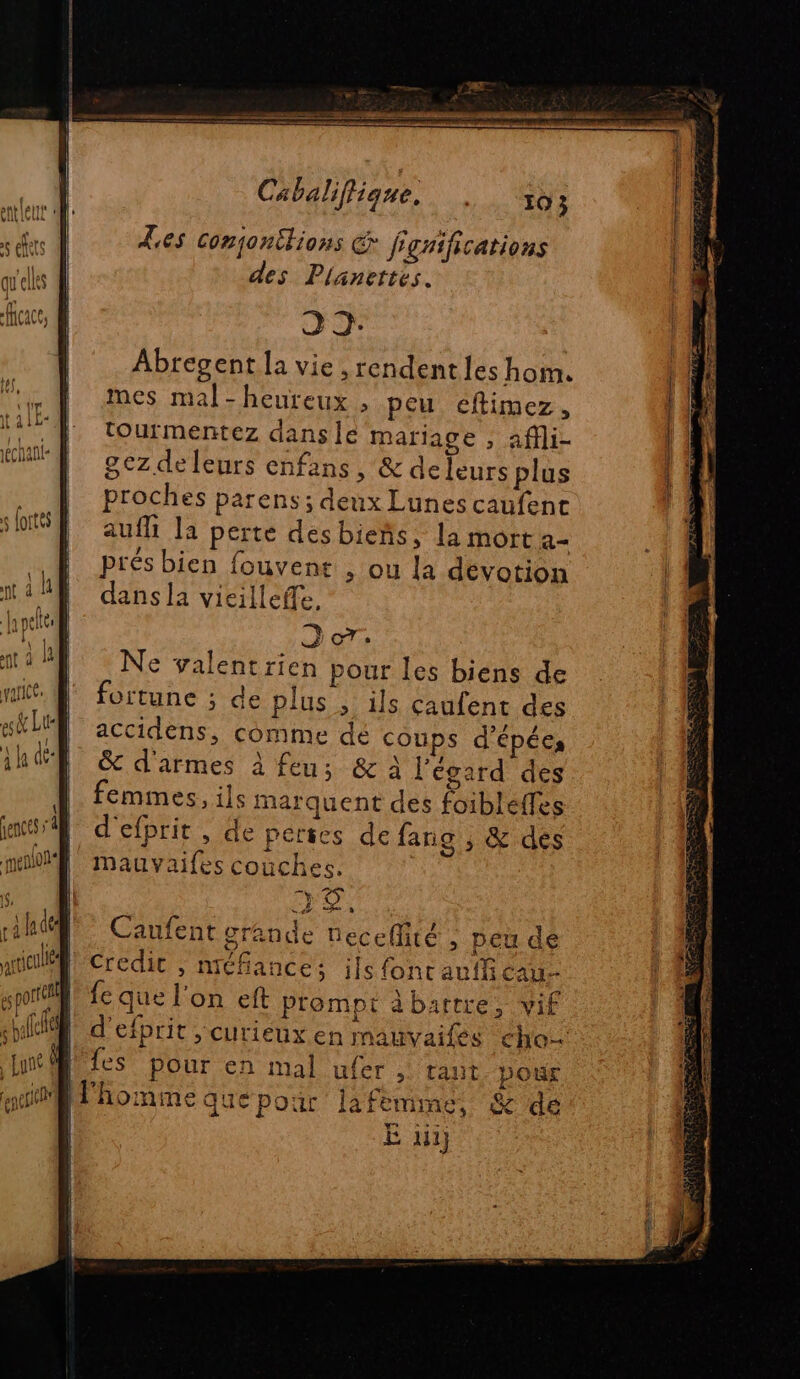 Cabaliſtique. 103
Les conjonctions & ſignifications
des Planettes.
☽☽.
Abregent la vie, rendent les hom-
mes mal-heureux, peu eſtimez,
tourmentez dans le mariage, affli-
gez de leurs enfans, & de leurs plus
proches parens; deux Lunes cauſent
auſſi la perte des biens, la mort a-
prés bien ſouvent, ou la devotion
dans la vieilleſſe.
☽♂.
Ne valent rien pour les biens de
fortune ; de plus, ils cauſent des
accidens, comme de coups d'épée,
& d'armes à feu; & à l'égard des
femmes, ils marquent des foibleſſes
d'eſprit, de pertes de ſang, & des
mauvaiſes couches.
☽☿.
Cauſent grande neceſſité, peu de
credit, méfiance; ils font auſſi cau-
ſe que l'on eſt prompt à battre, vif
d'eſprit, curieux en mauvaiſes cho-
ſes pour en mal uſer, tant pour
l'homme que pour la femme, & de
E iiij